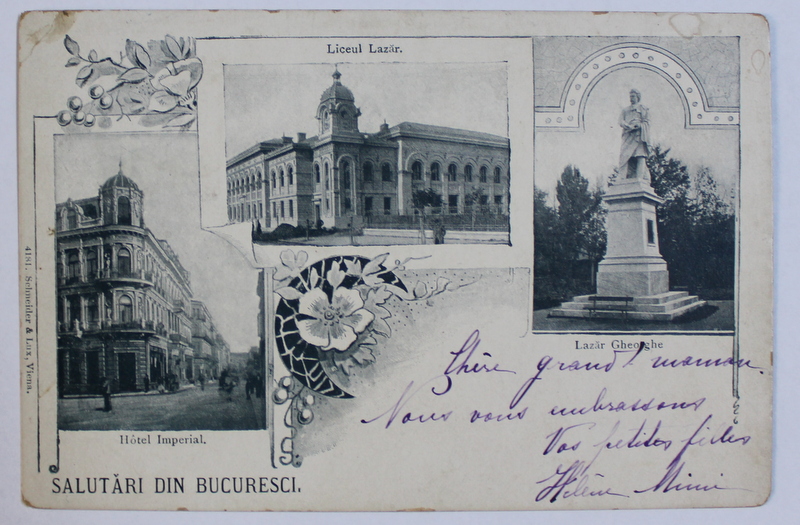 Liceul Lazăr.
Lazăr Gheorghe
Hôtel Imperial.
4181. Schneider & Lux, Viena.
SALUTĂRI DIN BUCURESCI.
Chère grand'maman.
Nous vous embrassons
Vos petites filles
Hélène Mimi